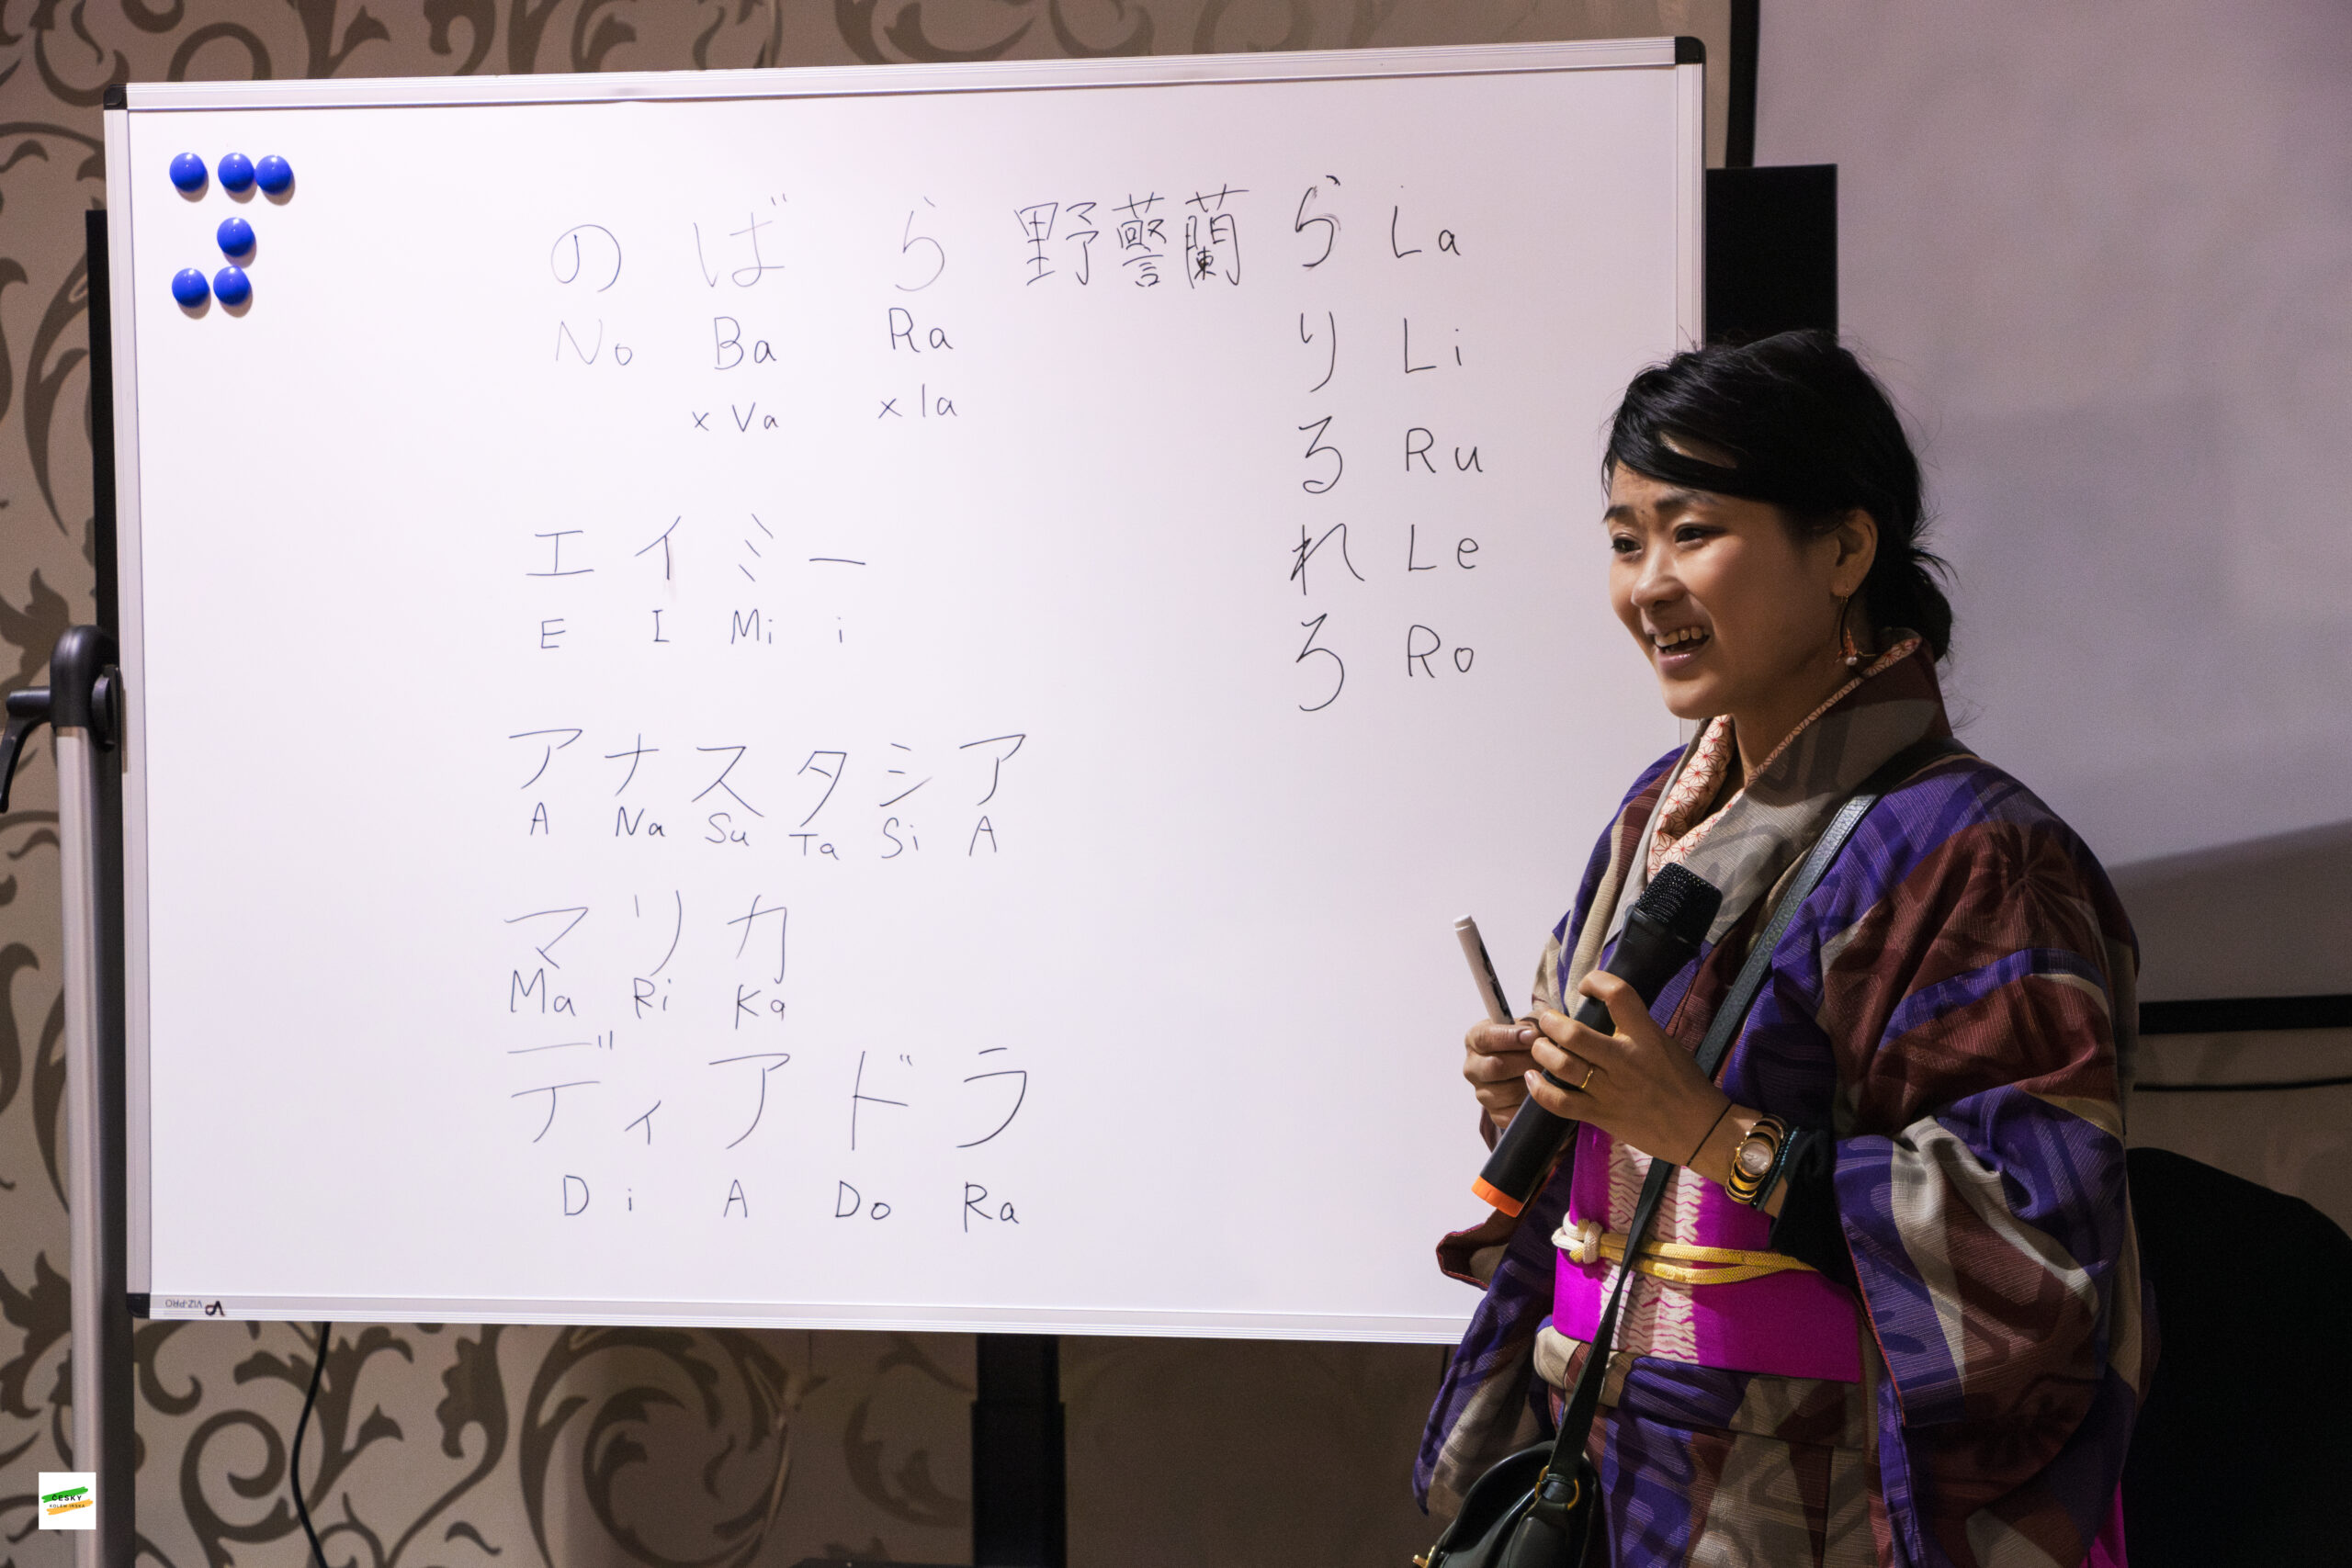 のばら 野薔蘭 ら La
No Ba Ra
り Li
x Va x la
る Ru
エイミー
れ Le
E I Mi i
ろ Ro
アナスタシア
A Na Su Ta Si A
マリカ
Ma Ri Ka
ディアドラ
D i A Do Ra
VIZ-PRO
ČESKY